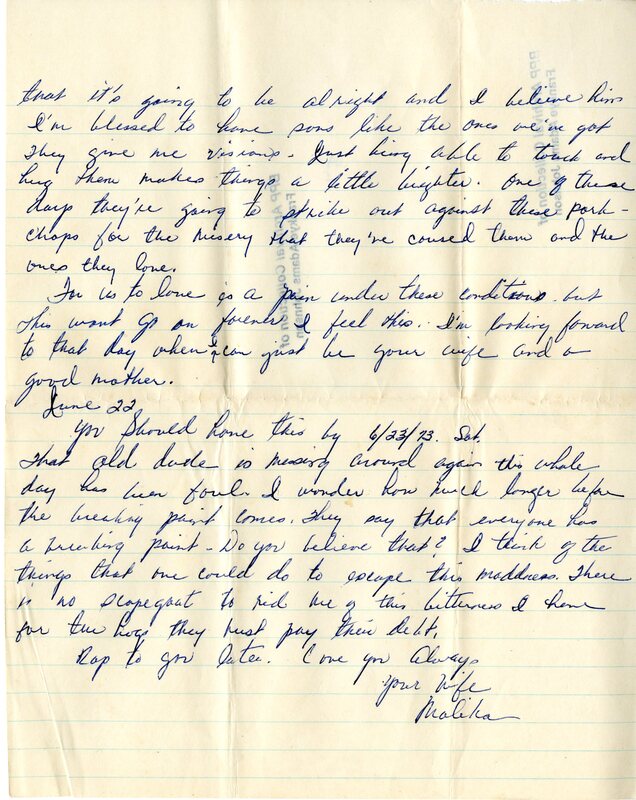 that it's going to be alright and I believe him
I'm blessed to have sons like the ones we've got
They give me visions - Just being able to touch and
hug them makes things a little brighter. One of these
days they're going to strike out against these pork-
chops for the misery that they've caused them and the
ones they love.
For us to love is a pain under these conditions but
this wont go on forever I feel this. I'm looking foward
to that day when I can just be your wife and a
good mother.
June 22
You should have this by 6/23/73. Sat.
That old dude is messing around again this whole
day has been foul. I wonder how much longer before
the breaking point comes. They say that everyone has
a breaking point - Do you believe that? I think of the
things that one could do to escape this maddness. There
is no scapegoat to rid me of this bitterness I have
for the hogs they must pay their debt.
Rap to you later. Love you Always
Your Wife
Malika